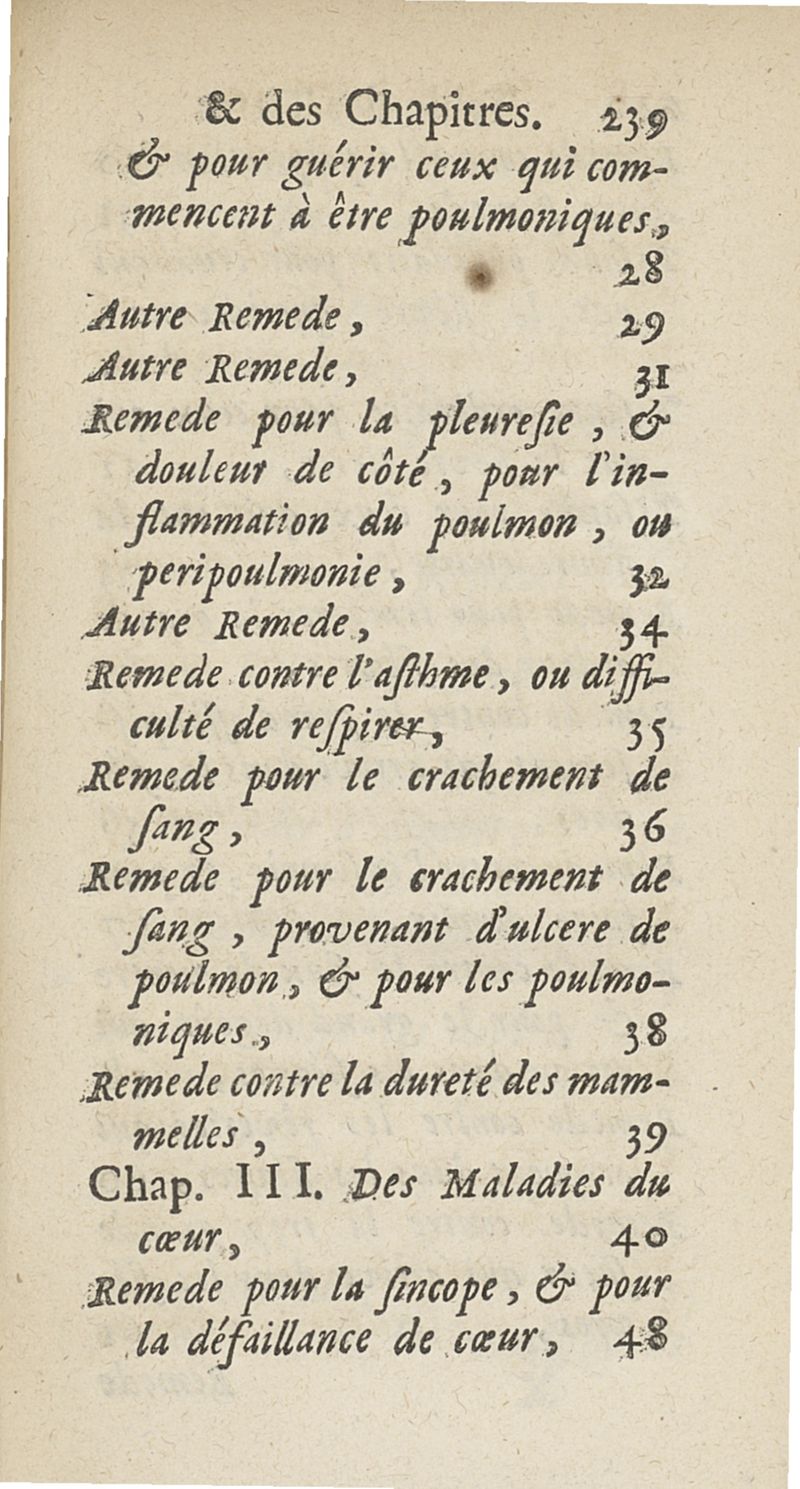 & des Chapitres. 239
& pour guérir ceux qui com-
mencent à être poulmoniques,
28
Autre Remede, 29
Autre Remede, 31
Remede pour la pleureſie, &
douleur de côté, pour l'in-
flammation du poulmon, ou
peripoulmonie, 32
Autre Remede, 34
Remede contre l'aſthme, ou diffi-
culté de reſpirer, 35
Remede pour le crachement de
ſang, 36
Remede pour le crachement de
ſang, provenant d'ulcere de
poulmon, & pour les poulmo-
niques, 38
Remede contre la dureté des mam-
melles, 39
Chap. III. Des Maladies du
cœur, 40
Remede pour la ſincope, & pour
la défaillance de cœur, 48